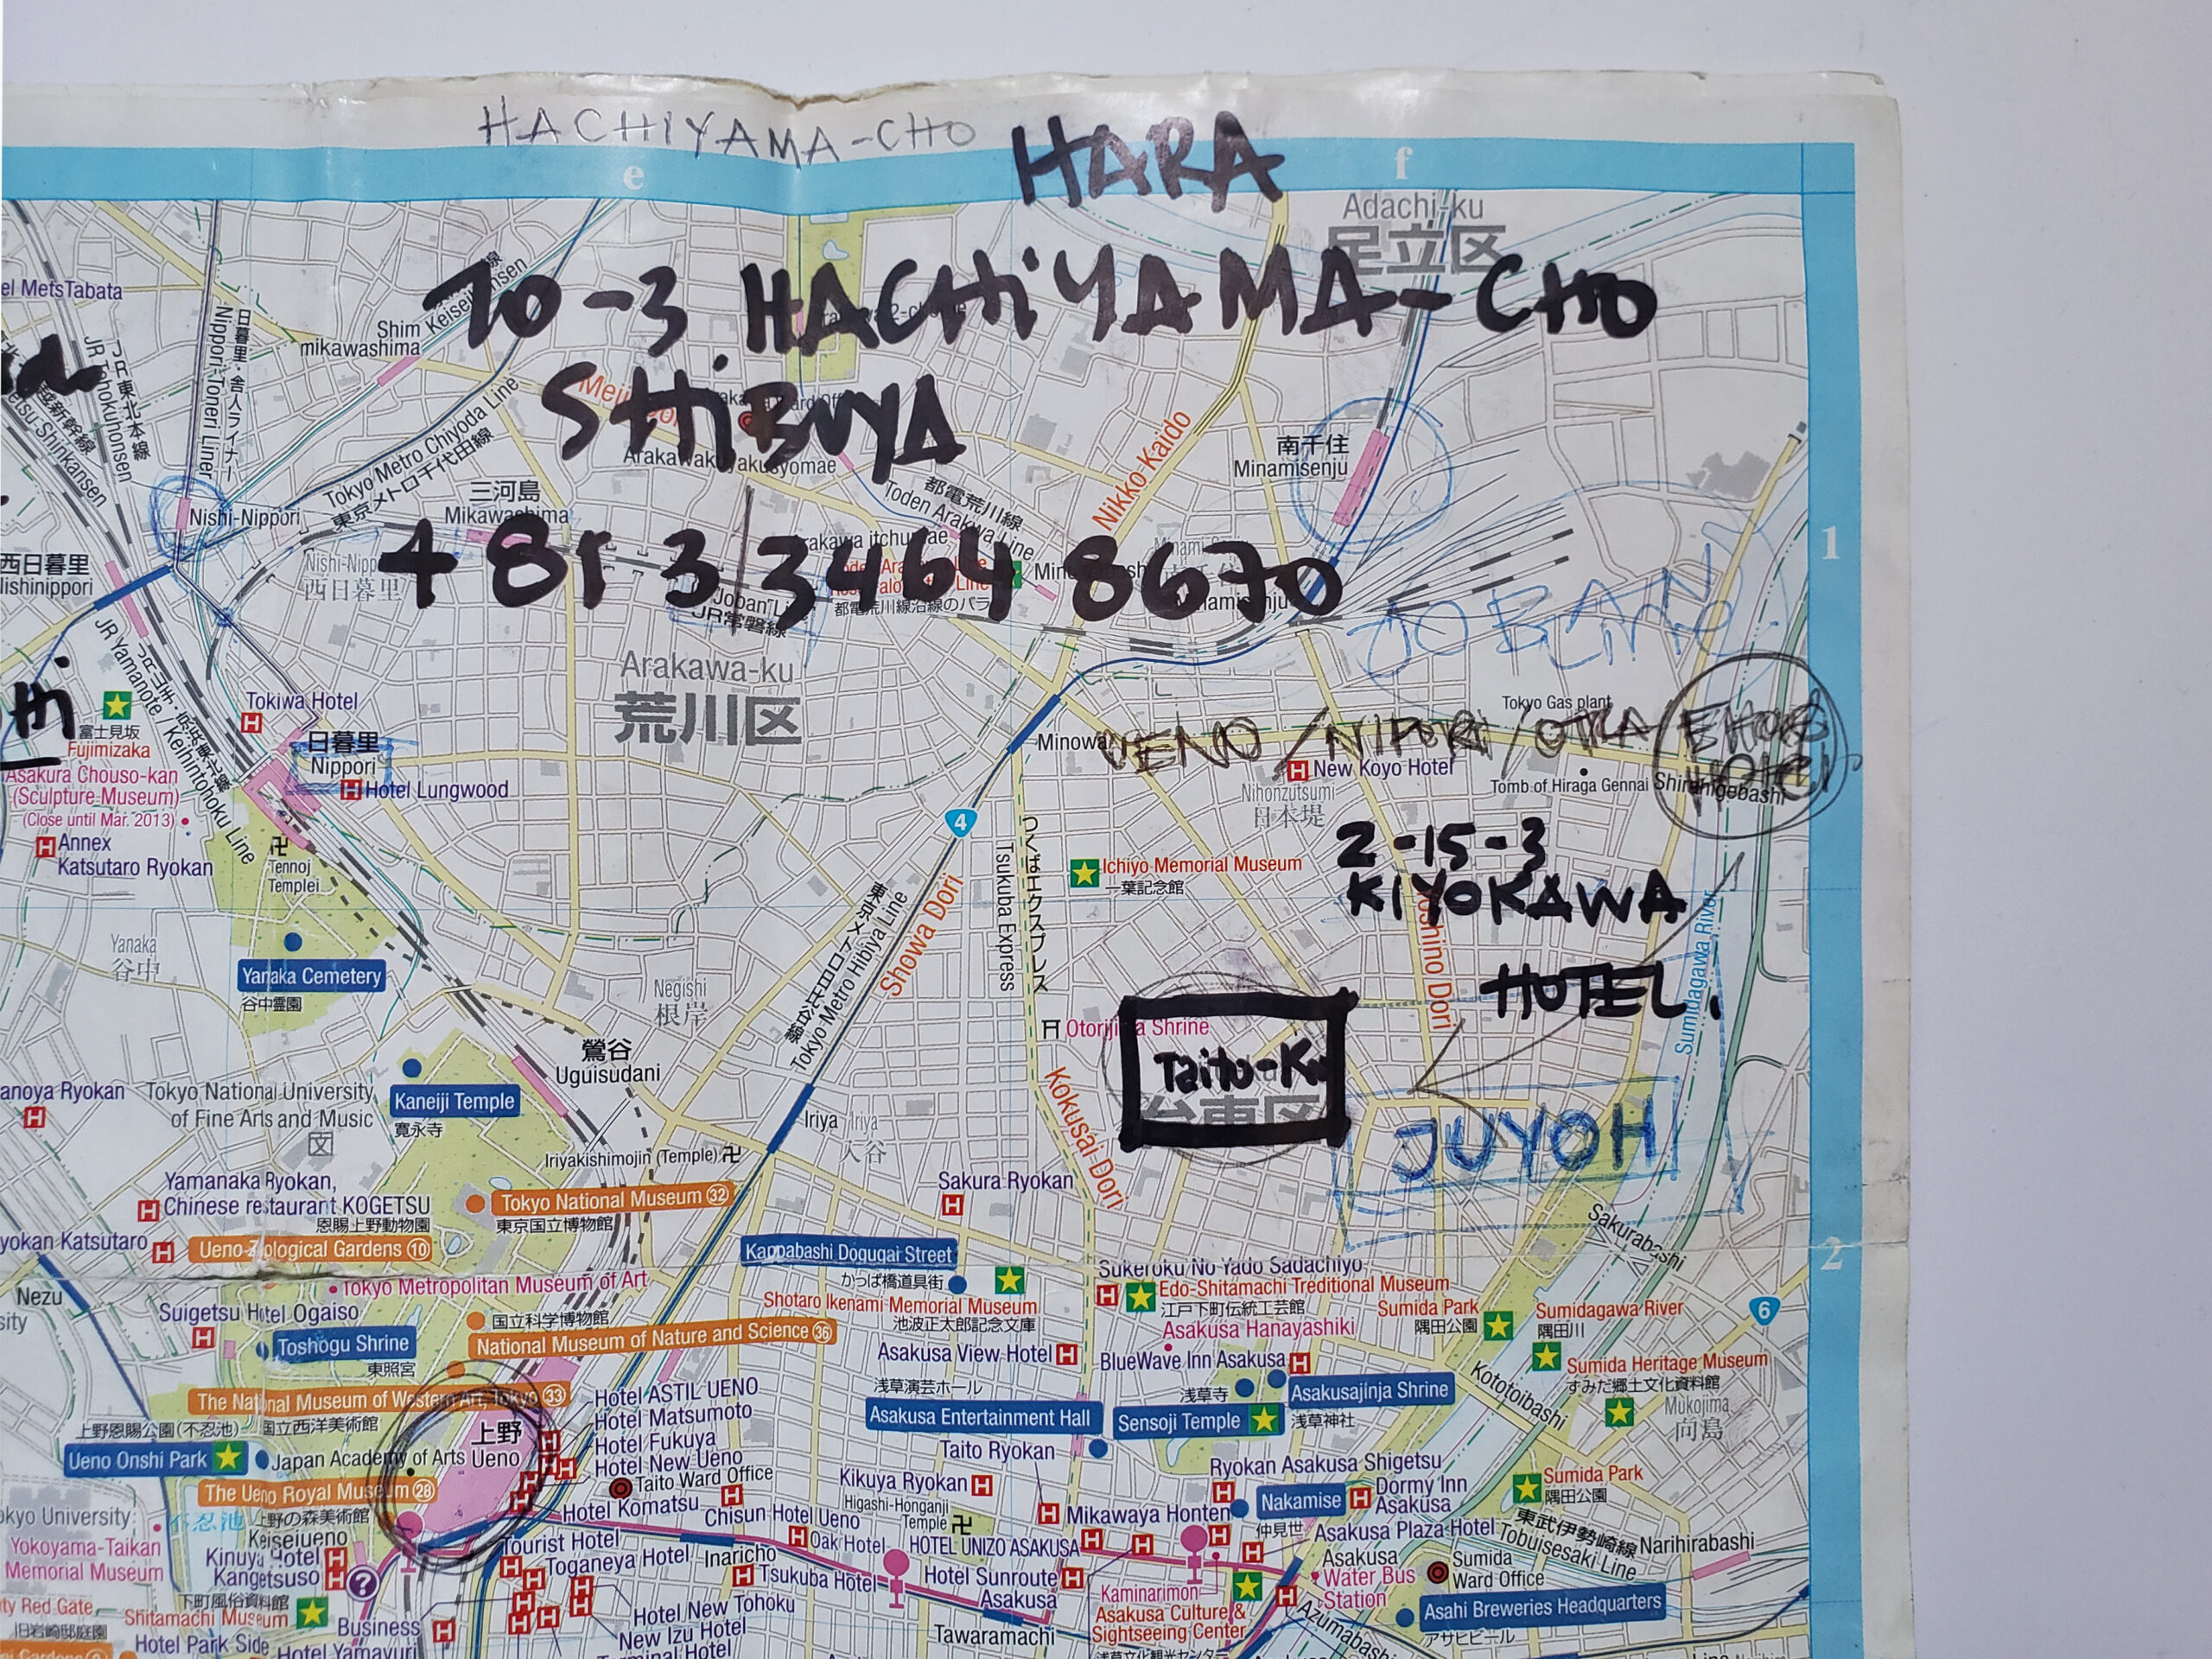 HACHIYAMA-CHO HARA
e
f
Adachi-ku
足立区
70-3 HACHIYAMA-CHO
SHIBUYA
el MetsTabata
日暮里・舎人ライナー
Nippori-Toneri Liner
JR東北本線
JR Tohokuhonsen
Shim
mikawashima
Keiseihonsen
Tokyo Metro Chiyoda Line
東京メトロ千代田線
Nikko-Kaido
南千住
Minamisenju
Nishi-Nippori
三河島
Mikawashima
都電荒川線
Toden Arakawa Line
1
西日暮里
ishinippori
西日暮里
+ 81 3 3464 8670
Joban Li
JR常磐線
都電荒川線沿線のバラ
JOBAN
LINE
Arakawa-ku
荒川区
Tokiwa Hotel
富士見坂
Fujimizaka
日暮里
Nippori
Hotel Lungwood
JR Yamanote / Keihintohoku Line
Asakura Chouso-kan
(Sculpture Museum)
(Close until Mar. 2013)
Annex
Katsutaro Ryokan
Tennoj
Templei
Tokyo Gas plant
Minowa
UENO / NIPORI /
New Koyo Hotel
Nihonzutsumi
日本堤
Tomb of Hiraga Gennai
Shirahigebashi
4
つくばエクスプレス
Tsukuba Express
Ichiyo Memorial Museum
一葉記念館
2-15-3
KIYOKAWA
HOTEL.
Yoshino Dori
Sumidagawa River
Showa Dori
東京メトロ日比谷線
Tokyo Metro Hibiya Line
Yanaka
谷中
Yanaka Cemetery
谷中霊園
Negishi
根岸
Otorijinja Shrine
Taito-Ku
台東区
JUYOH
Kokusai Dori
鶯谷
Uguisudani
anoya Ryokan
Tokyo National University
of Fine Arts and Music
Kaneiji Temple
寛永寺
Iriya
Iriya
入谷
Iriyakishimojin (Temple)
Yamanaka Ryokan,
Chinese restaurant KOGETSU
恩賜上野動物園
Tokyo National Museum 32
東京国立博物館
Sakura Ryokan
yokan Katsutaro
Ueno Zoological Gardens 10
Sakurabashi
2
Kappabashi Dogugai Street
かっぱ橋道具街
Nezu
Tokyo Metropolitan Museum of Art
Suigetsu Hotel Ogaiso
国立科学博物館
National Museum of Nature and Science 36
Shotaro Ikenami Memorial Museum
池波正太郎記念文庫
Sukeroku No Yado Sadachiyo
Edo-Shitamachi Treditional Museum
江戸下町伝統工芸館
Sumida Park
隅田公園
Sumidagawa River
隅田川
6
Toshogu Shrine
東照宮
Asakusa Hanayashiki
Asakusa View Hotel
BlueWave Inn Asakusa
Sumida Heritage Museum
すみだ郷土文化資料館
The National Museum of Western Art, Tokyo 33
国立西洋美術館
上野恩賜公園(不忍池)
Hotel ASTIL UENO
Hotel Matsumoto
Hotel Fukuya
Hotel New Ueno
浅草演芸ホール
Asakusa Entertainment Hall
浅草寺
Sensoji Temple
Asakusajinja Shrine
浅草神社
Kototoibashi
Mukojima
向島
Ueno Onshi Park
Japan Academy of Arts
上野
Ueno
Taito Ward Office
The Ueno Royal Museum 28
上野の森美術館
Taito Ryokan
Kikuya Ryokan
Ryokan Asakusa Shigetsu
Dormy Inn
Asakusa
Sumida Park
隅田公園
kyo University
不忍池
Yokoyama-Taikan
Memorial Museum
Keiseiueno
Kinuya Hotel
Kangetsuso
Hotel Komatsu
Chisun Hotel Ueno
Higashi-Honganji
Temple
Mikawaya Honten
Nakamise
仲見世
Asakusa Plaza Hotel
東武伊勢崎線
Tobuisesaki Line
Narihirabashi
Tourist Hotel
Toganeya Hotel
Inaricho
Oak Hotel
Tsukuba Hotel
HOTEL UNIZO ASAKUSA
Hotel Sunroute
Asakusa
Kaminarimon
Asakusa Culture &
Sightseeing Center
浅草文化観光センター
Asakusa
Water Bus
Station
Sumida
Ward Office
Asahi Breweries Headquarters
アサヒビール
下町風俗資料館
Shitamachi Museum
旧岩崎邸庭園
Hotel Park Side
Business
Hotel Yamayuri
Hotel New Tohoku
New Izu Hotel
Terminal Hotel
Tawaramachi
Azumabashi